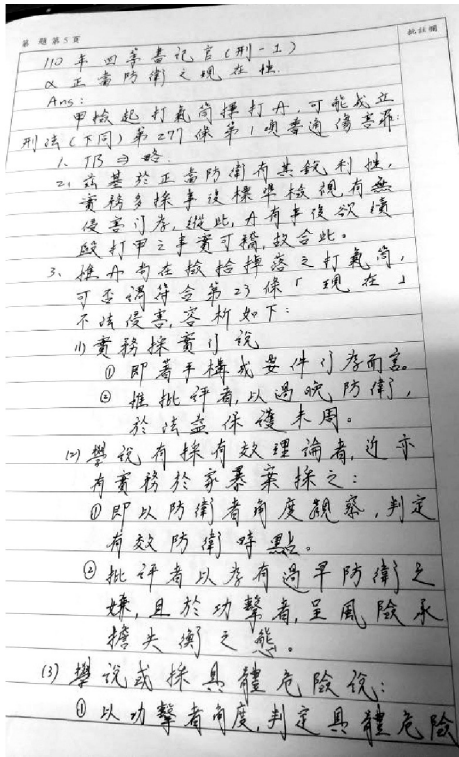 第 題第5頁
批註欄
110年四等書記官(刑-1)
α正當防衛之現在性.
Ans:
甲撿起打氣筒揮打A,可能成立
刑法(下同)第277條第1項普通傷害罪:
1、TB⇒略.
2、茲基於正當防衛有其銳利性,
實務多採事後標準檢視有無
侵害行存,縱此,A有事後欲續
毆打甲之事實可稽,故合此。
3、惟A尚在撿拾摔落之打氣筒,
可否謂符合第23條「現在」
不法侵害,容析如下:
(1)實務採實行說
①即著手構成要件行存而言。
②惟批評者,以過晚防衛,
於法益保護未周。
(2)學說有採有效理論者,近亦
有實務於家暴案採之:
①即以防衛者角度觀察,判定
有效防衛時點。
②批評者以存有過早防衛之
嫌,且於功擊者,呈風險承
擔失衡之態。
(3)學說或採具體危險說:
①以功擊者角度,判定具體危險